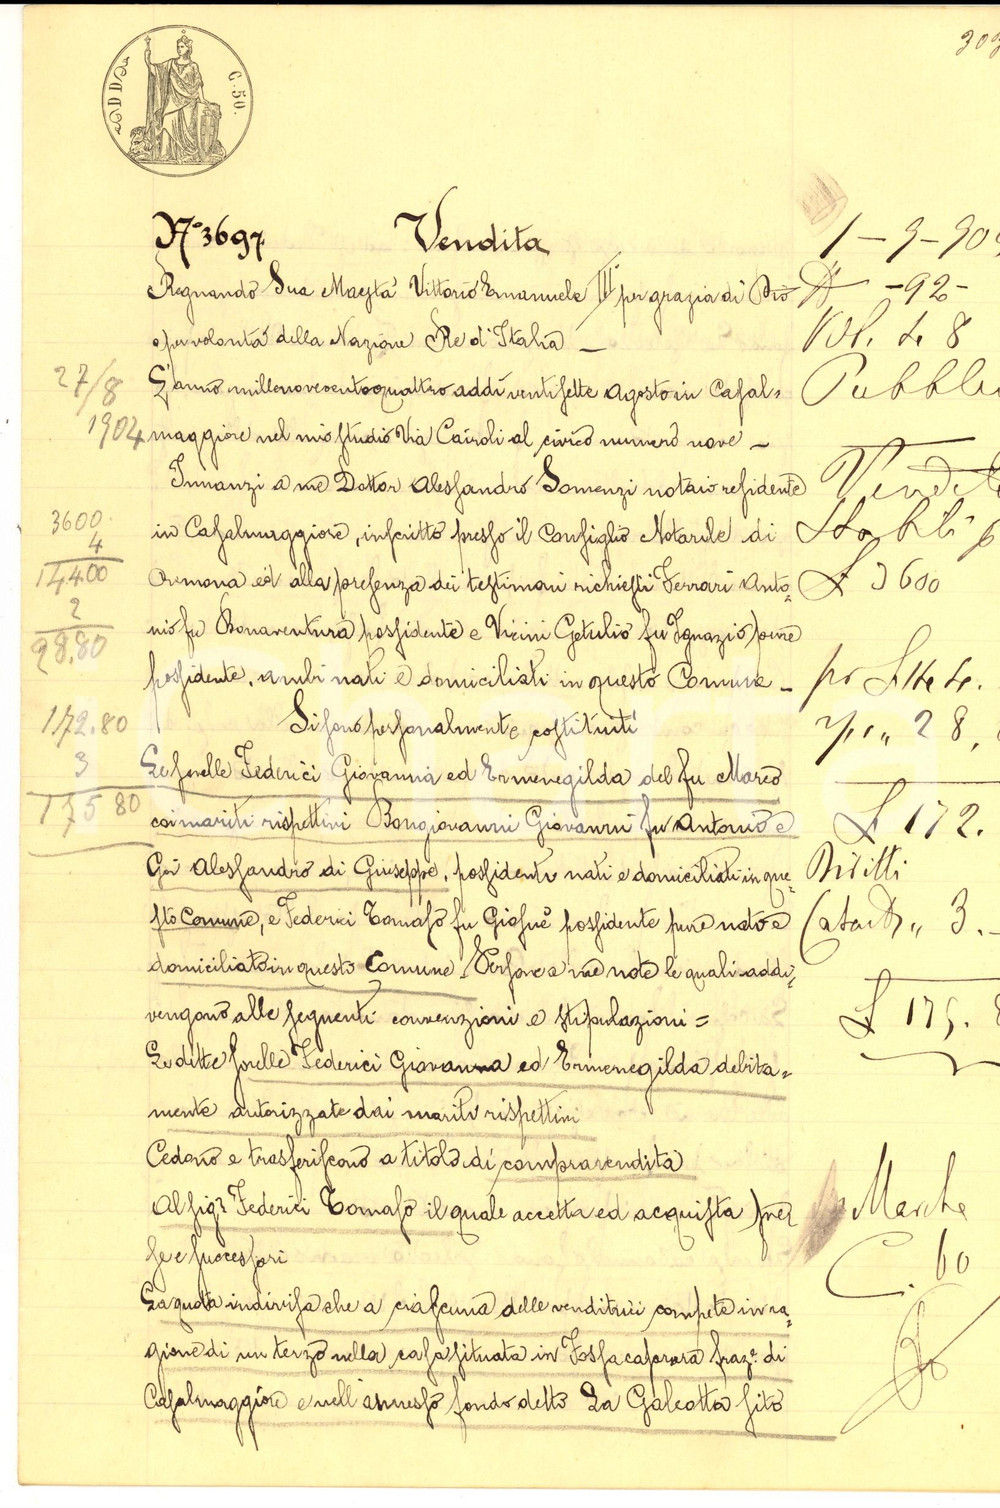 C. 50.
303
N.° 3697 Vendita
1-9-904
Regnando Sua Maestà Vittorio Emanuele III per grazia di Dio
N -92-
e per volontà della Nazione Re d'Italia –
Vol. 48
27/8
L'anno millenovecentoquattro addì ventisette Agosto in Casal=
Pubbli
1904
maggiore nel mio studio Via Cairoli al civico numero nove –
Innanzi a me Dottor Alessandro Somenzi notaio residente
Vendit
3600
in Casalmaggiore, inscritto presso il Consiglio Notarile di
Stabili p
4
14400
Cremona ed alla presenza dei testimoni richiesti Ferrari Anto=
£ 3600
2
nio fu Bonaventura possidente e Vicini Getulio fu Ignazio pure
28.80
possidente, ambi nati e domiciliati in questo Comune –
pr £ 144.
172.80
Si sono personalmente costituiti
" 28,
3
Le sorelle Federici Giovanna ed Ermenegilda del fu Marco
175 80
coi mariti rispettivi Bongiovanni Giovanni fu Antonio e
£ 172.
Goi Alessandro di Giuseppe, possidenti nati e domiciliati in que=
Diritti
sto Comune, e Federici Tomaso fu Giosuè possidente pure nato e
Catast. " 3.–
domiciliato in questo Comune. Persone a me note le quali addi=
vengono alle seguenti convenzioni e stipulazioni =
£ 175. 8
Le dette sorelle Federici Giovanna ed Ermenegilda debita=
mente autorizzate dai mariti rispettivi
Cedono e trasferiscono a titolo di compravendita
Al sig.r Federici Tomaso il quale accetta ed acquista per
Marche
se e successori
C. 60
La quota indivisa che a ciascuna delle venditrici compete in ra=
gione di un terzo nella casa situata in Fossacaprara fraz.e di
Casalmaggiore e nell'annesso fondo detto La Galeotta sito